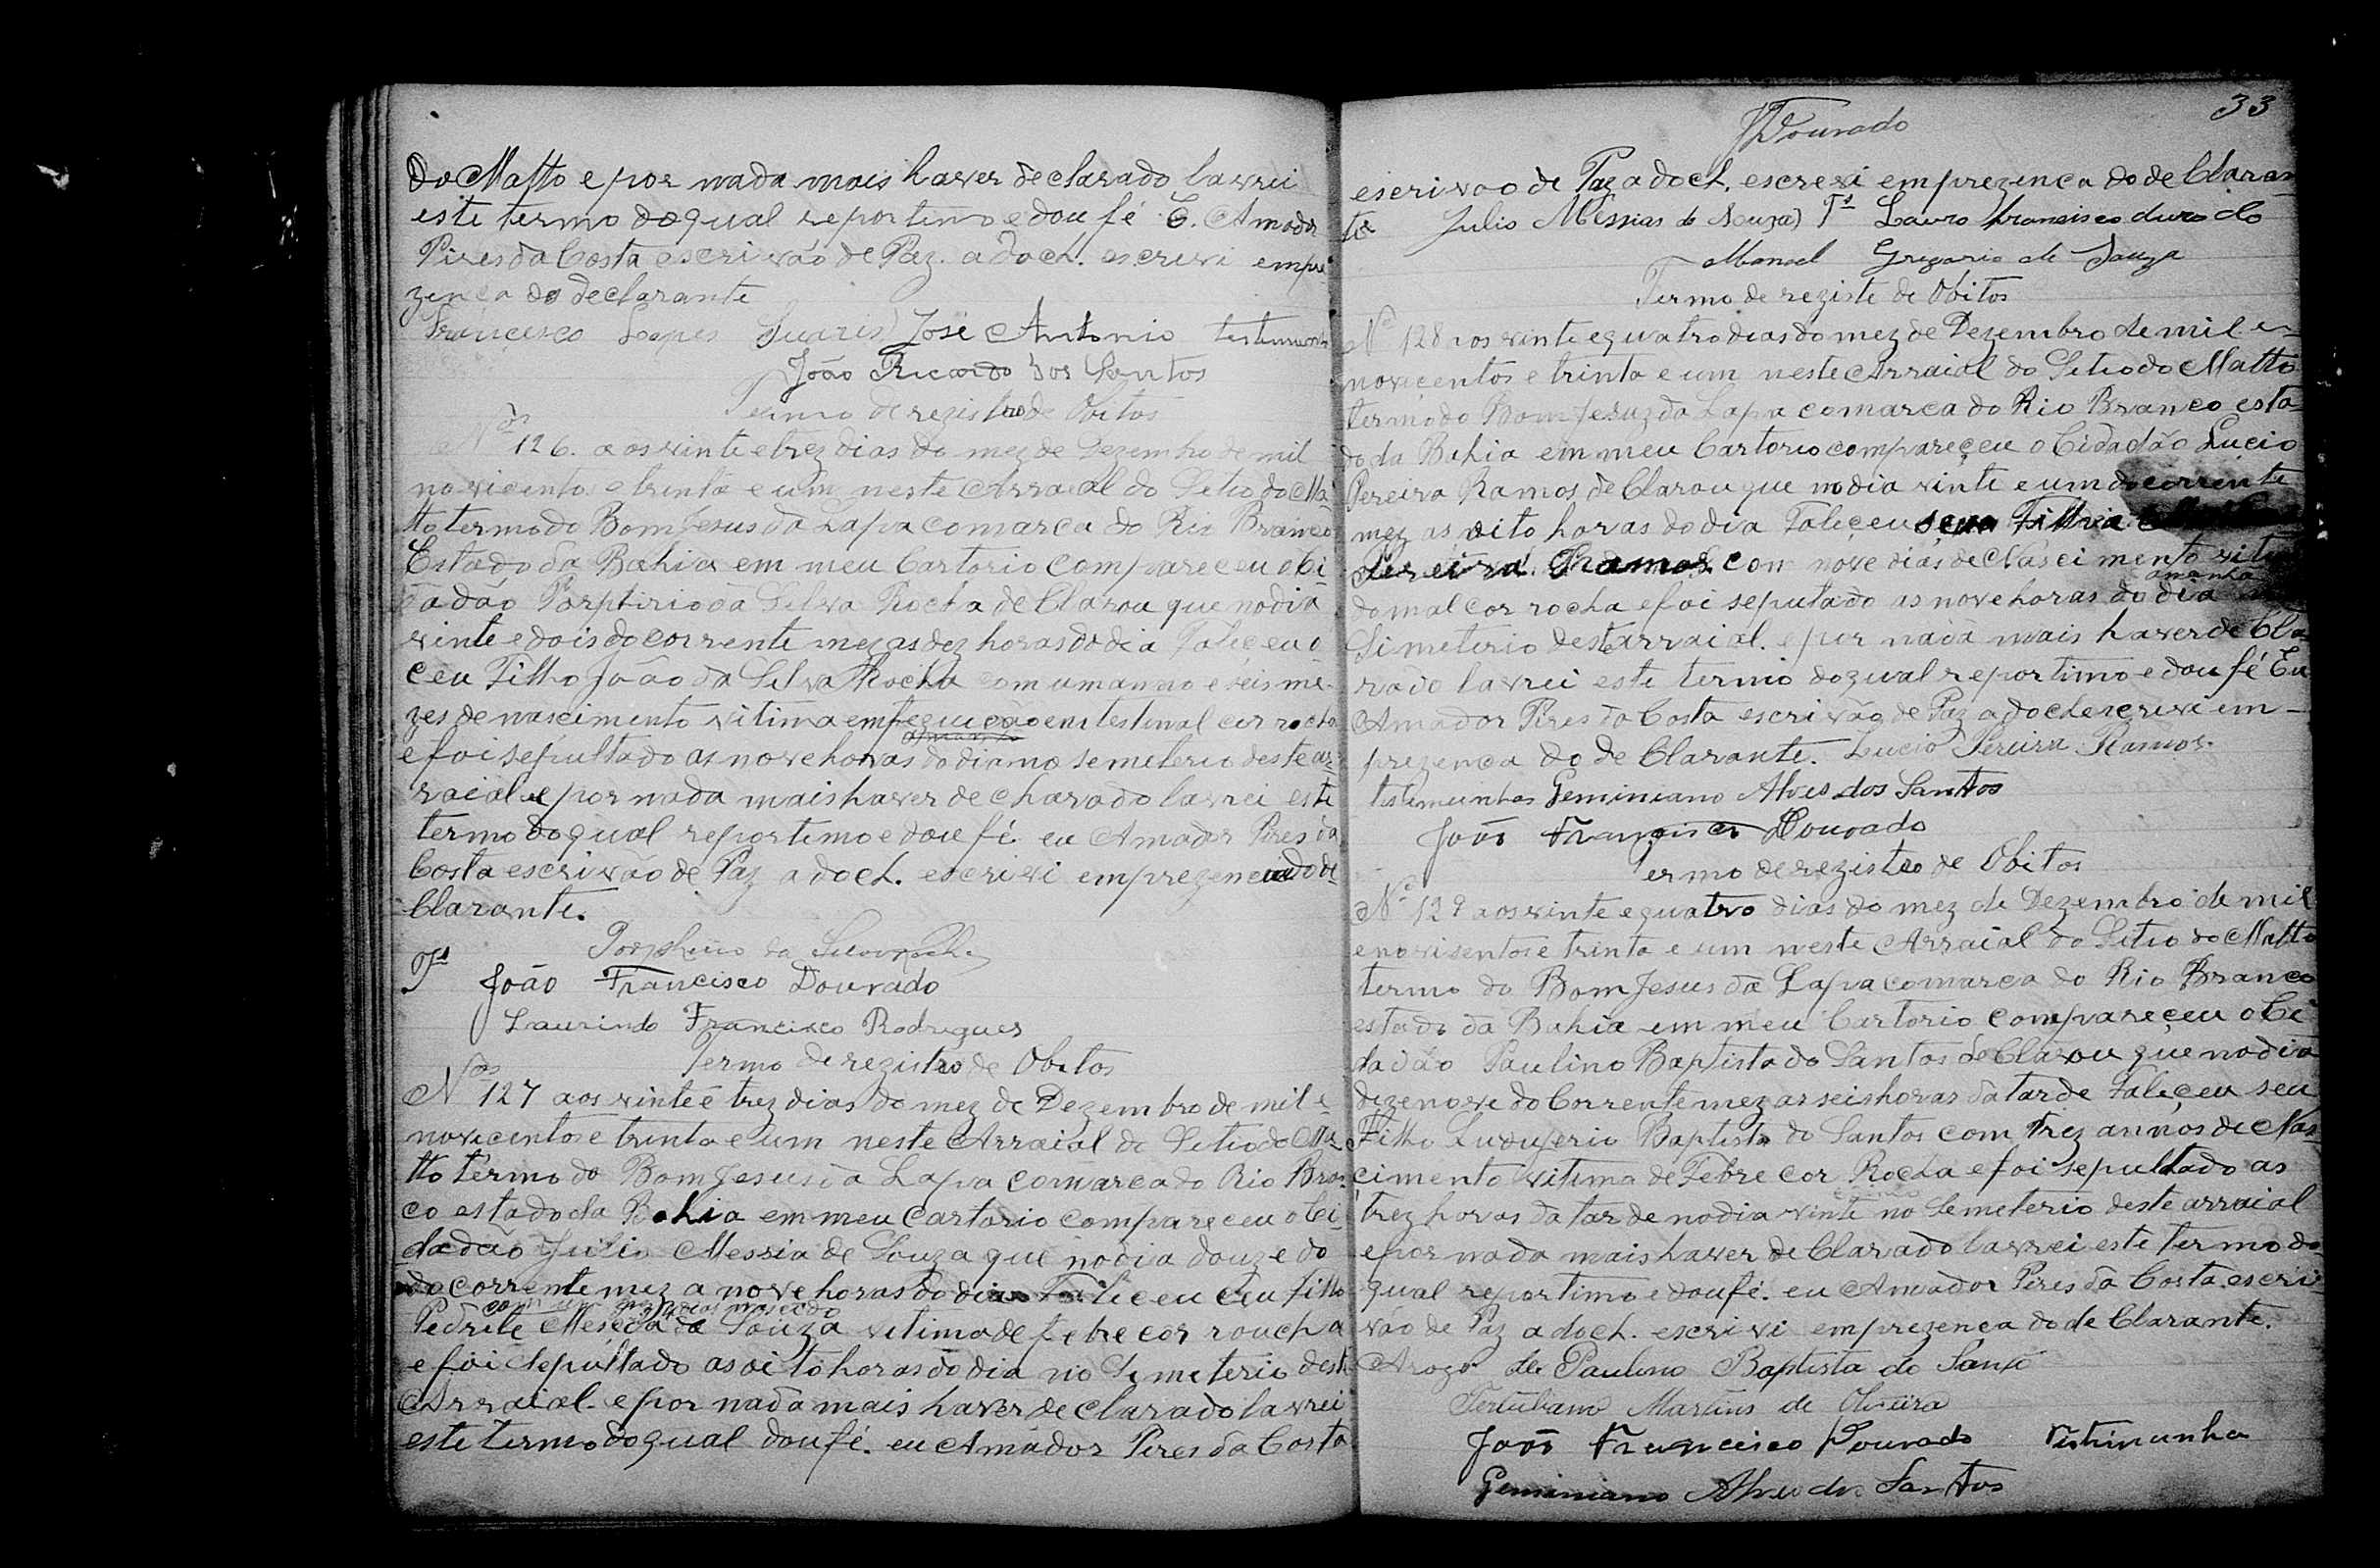 do Matto e por nada mais haver declarado lavrei
este termo do qual reportimo e dou fé E. Amador
Pires da Costa escrivão de Paz. adoch. escrevi empre
zença do declarante
Francisco Lopes Suares José Antonio testemunha
João Ricardo dos Santos
Termo de registro de Obitos
Nº 126. aos vinte e trez dias do mez de Dezembro de mil
novicentos e trinta e um neste Arraial do Sitio do Ma
tto termo do Bom Jesus da Lapa comarca do Rio Branco
Estado da Bahia em meu Cartorio compareceu o Ci
dadão Porphirio da Silva Rocha de Clarou que no dia
vinte e dois do corrente mez as dez horas do dia Faliçeu o
ceu Filho João da Silva Rocha com um anno e seis me
zes de nascimento vitima emfequição emtestinal cor rocha
e foi sepultado as nove horas do dia no semeterio deste ar
raial e por nada mais haver declarado lavrei este
termo do qual reportimo e dou fé eu Amador Pires da
Costa escrivão de Paz adoch. escrivi emprezença do de
Clarante.
Porphirio da Silva Rocha
Tas João Francisco Dourado
Laurindo Francisco Rodrigues
Termo de registro de Obitos
Nº 127 aos vinte e trez dias do mez de Dezembro de mil e
novicentos e trinta e um neste Arraial do Sitio do Ma
tto termo do Bom Jesus da Lapa comarca do Rio Bran
co estado da Bahia em meu Cartorio compareceu o Ci
dadão Julio Messia de Souza que no dia douze do
do corrente mez a nove horas do dia Faliceu ceu filho
dias nascido
de Souza vitima de febre cor roucha
e foi sepultado as oito horas do dia no Semeterio deste
Arraial. e por nada mais haver declarado lavrei
este termo do qual dou fé. eu Amador Pires da Costa
33
JDourado
escrivão de Paz adoch. escrevi emprezença do de Claran
te Julio Messias de Souza Tas Lauro francisco durado
Manoel Gregorio de Souza
Termo de registe de Obitos
Nº 128 aos vinte e quatro dias do mez de Dezembro de mil e
novicentos e trinta e um neste Arraial do Sitio do Matto
termo do Bom Jesuz da Lapa comarca do Rio Branco esta
do da Bahia em meu Cartorio compareçeu o Cidadão Lucio
Pereira Ramos de Clarou que no dia vinte e um do corrente
mez as oito horas do dia Faliçeu sua Filhia
Pireira Ramos com nove dias de Nascimento viti
amanha
do mal cor rocha e foi seputado as nove horas do dia
Simeterio deste arraial. e por nada mais haver de Cla
rado lavrei este termo do qual reportimo e dou fé Eu
Amador Pires da Costa escrivão de Paz adoch escrevi em
prezença do de Clarante. Lucio Pereira Ramos.
testimunhas Geminiano Alves dos Santos
João Francisco Dourado
Termo de registro de Obitos
Nº 129 aos vinte e quatro dias do mez de Dezembro de mil
e novisentos e trinta e um neste Arraial do Sitio do Matto
termo do Bom Jesus da Lapa comarca do Rio Branco
estado da Bahia em meu Cartorio compareçeu o Ci
dadão Paulino Baptista do Santos de Clarou que no dia
dezenove do Corrente mez as seis horas da tarde Faliçeu seu
Filho Ludugerio Baptista do Santos com trez annos de Nas
cimento vitima de Febre cor Rocha e foi sepultado as
trez horas da tarde no dia vinte no Semeterio deste arraial
e por nada mais haver de Clarado lavrei este termo do
qual reportimo e dou fé. eu Amador Pires da Costa escri
vão de Paz adoch. escrivi emprezença do de Clarante.
Arogo de Paulino Baptista do Santo
Tertuliano Martins de Oliveira
João Francisco Dourado Testimunha
Geminiano Alves dos Santos